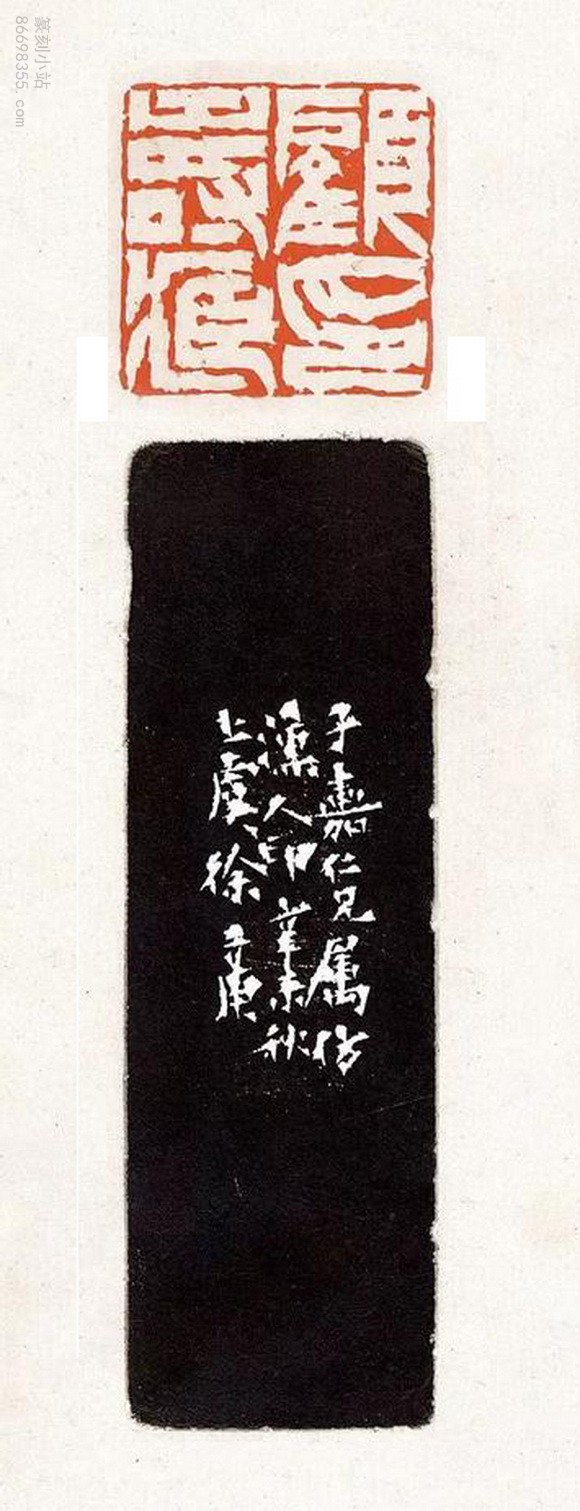 篆刻小站
86698355.com
顧印
子嘉仁兄属仿
漢人印辛未秋
上虞徐三庚